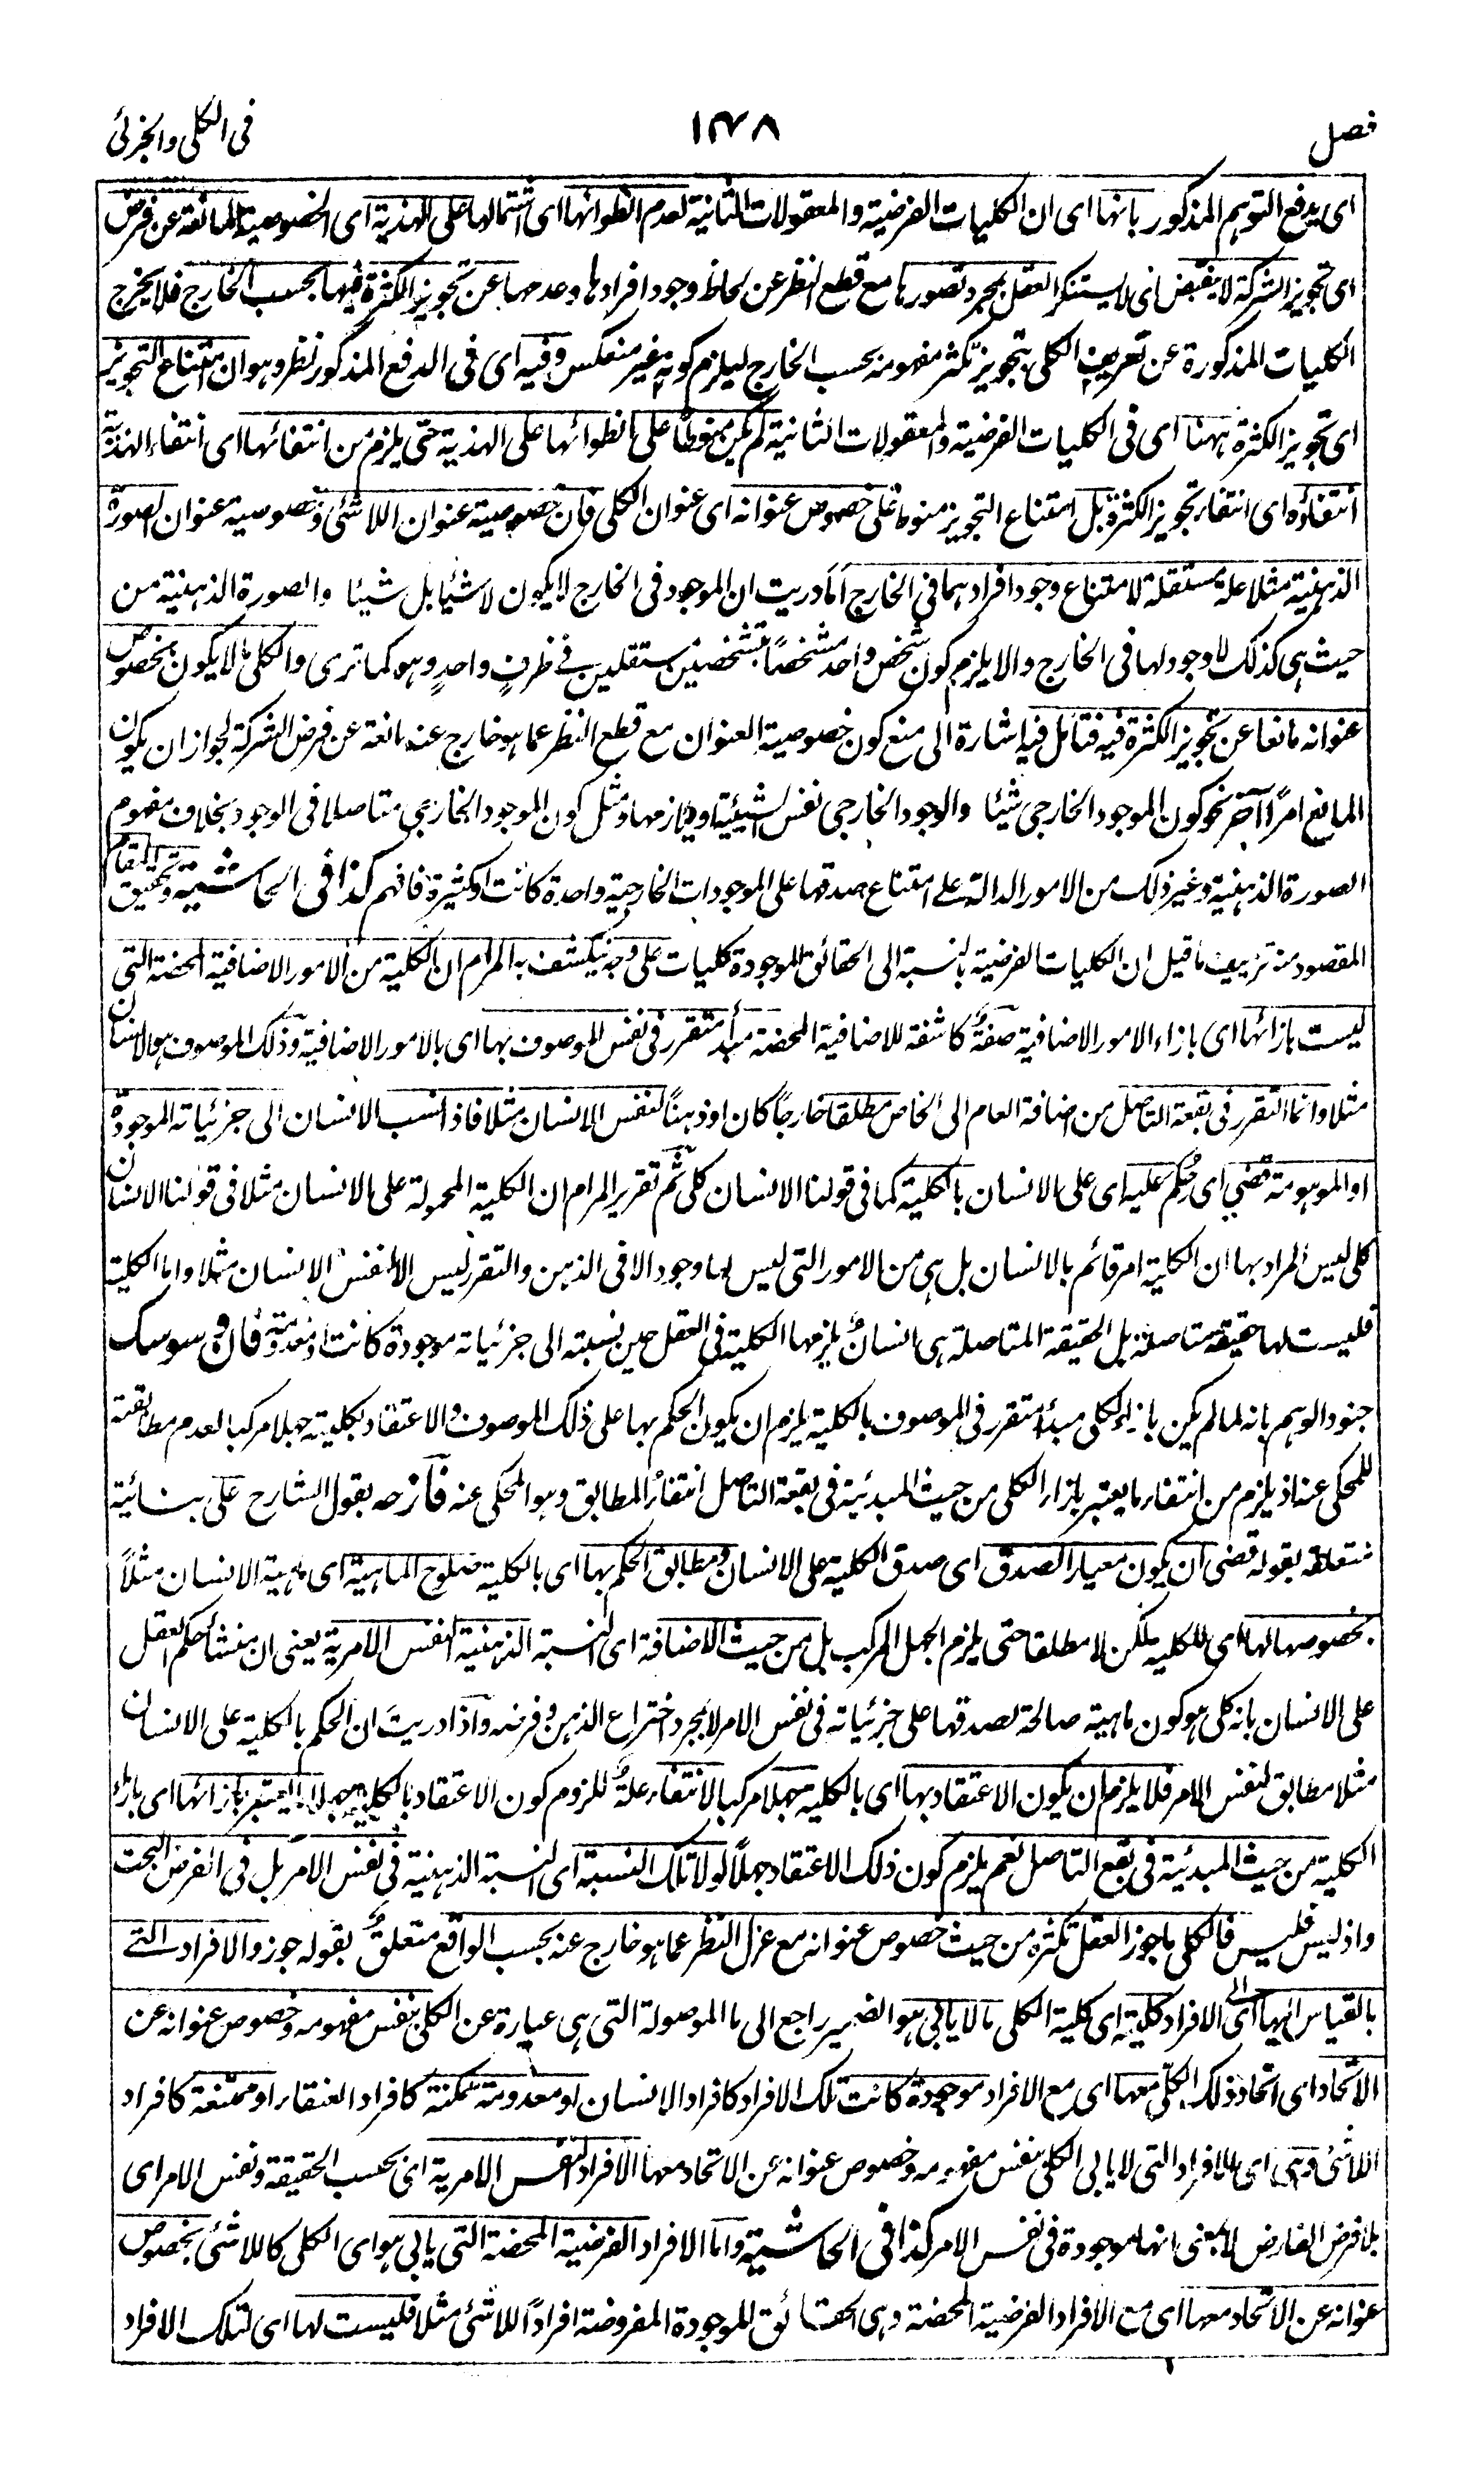 فصل
١٣٧٨
فى الكلى والجزئى
اى يدفع التوهم المذكور بانها اى ان الكليات الفرضية والمعقولات الثانية لعدم انطوائها اى اشتمالها على الهذية اى الخصوصية المانعة عن فرض
اى تجويز الشركة لا ينقبض اى لا يستنكر العقل بمجرد تصورها مع قطع النظر عن لحاظ وجود افرادها وعدمها عن تجويز الكثرة فيها بحسب الخارج فلا يخرج
الكليات المذكورة عن تعريف الكلى بتجويز تكثر مفهومه بحسب الخارج ليلزم كونه غير منعكس وفيه اى فى الدفع المذكور نظر وهو ان امتناع التجويز
اى تجويز الكثرة ههنا اى فى الكليات الفرضية والمعقولات الثانية لم يكن منوطا على انطوائها على الهذية حتى يلزم من انتفائها اى انتفاء الهذية
انتفاؤه اى انتفاء تجويز الكثرة بل امتناع التجويز منوط على خصوص عنوانه اى عنوان الكلى فان خصوصية عنوان اللاشئ وخصوصية عنوان الصورة
الذهنية مثلا علة مستقلة لامتناع وجود افرادهما فى الخارج اَمَا دريت ان الموجود فى الخارج لا يكون لا شيئا بل شيئا والصورة الذهنية من
حيث هى كذلك لا وجود لها فى الخارج والا يلزم كون شخص واحد مشخصاً بتشخصين مستقلين فى ظرفٍ واحدٍ وهو كما ترى والكلى ما لا يكون بخصوص
عنوانه مانعا عن تجويز الكثرة فيه فتأمل فيه اشارة الى منع كون خصوصية العنوان مع قطع النظر عما هو خارج عنه مانعة عن فرض الشركة لجواز ان يكون
المانع امراً آخر نحو كون الموجود الخارجى شيئا والوجود الخارجى نفس الشيئية او يلازمها ومثل كون الموجود الخارجى متاصلا فى الوجود بخلاف مفهوم
الصورة الذهنية وغير ذلك من الامور الدالة على امتناع صدقها على الموجودات الخارجية واحدة كانت او كثيرة فافهم كذا فى الحاشية وتحقيق المقام
المقصود منه تزييف ما قيل ان الكليات الفرضية بالنسبة الى الحقائق الموجودة كليات على وجه ينكشف به المرام ان الكلية من الامور الاضافية المحضة التى
ليست بازائها اى بازاء الامور الاضافية صفةٌ كاشفة للاضافية المحضة مبدأ متقرر فى نفس الموصوف بها اى بالامور الاضافية وذلك الموصوف هو الانسان
مثلا وانما التقرر فى بقعة التاصل من اضافة العام الى الخاص مطلقا خارجاً كان او ذهناً لنفس الانسان مثلا فاذا نسب الانسان الى جزئياته الموجودة
او الموهومة قضي اى حُكِم عليه اى على الانسان بالكلية كما فى قولنا الانسان كلى ثم تقرير المرام ان الكلية المحمولة على الانسان مثلا فى قولنا الانسان
كلى ليس المراد بها ان الكلية امر قائم بالانسان بل هى من الامور التى ليس لها وجود الا فى الذهن والتقرر ليس الا لنفس الانسان مثلا واما الكلية
فليست لها حقيقة متاصلة بل الحقيقة المتاصلة هى انسانٌ يلزمها الكلية فى العقل حين نسبته الى جزئياته موجودة كانت او معدومة فان وسوسك
جنود الوهم بانه لما لم يكن بازاء الكلى مبدأ متقرر فى الموصوف بالكلية يلزم ان يكون الحكم بها على ذلك الموصوف والاعتقاد بكليته جهلا مركبا لعدم مطابقته
للمحكى عنه اذ يلزم من انتفاء ما يعتبر بازاء الكلى من حيث المبدئية فى بقعة التاصل انتفاء المطابق وهو المحكى عنه فازحه بقول الشارح على بنائية
متعلقة بقوله قضى ان يكون معيار الصدق اى صدق الكلية على الانسان ومطابق الحكم بها اى بالكلية صلوح الماهية اى ماهية الانسان مثلاً
بخصوصها لها اى للكلية لكن لا مطلقا حتى يلزم الجهل المركب بل من حيث الاضافة اى النسبة الذهنية النفس الامرية يعنى ان منشأ حكم العقل
على الانسان بانه كلى هو كون ماهية صالحة لصدقها على جزئياته فى نفس الامر لا بمجرد اختراع الذهن وفرضه واذا دريتَ ان الحكم بالكلية على الانسان
مثلا مطابق لنفس الامر فلا يلزم ان يكون الاعتقاد بها اى بالكلية جهلا مركبا لانتفاء علةٌ للزوم كون الاعتقاد بالكلية جهلا ما يعتبر بازائها اى بازاء
الكلية من حيث المبدئية فى بقع التاصل نعم يلزم كون ذلك الاعتقاد جهلاً لولا تلك النسبة اى النسبة الذهنية فى نفس الامر بل فى الفرض البحت
واذ ليس فليس فالكلى ما جوز العقل تكثره من حيث خصوص عنوانه مع عزل النظر عما هو خارج عنه بحسب الواقع متعلقٌ بقوله جوز والافراد التى
بالقياس اليها اى الى الافراد كلية اى كلية الكلى ما لا يابى هو الضمير راجع الى ما الموصولة التى هى عبارة عن الكلى بنفس مفهومه وخصوص عنوانه عن
الاتحاد اى اتحاد ذلك الكلى معها اى مع الافراد موجودة كانت تلك الافراد كافراد الانسان او معدومة ممكنة كافراد العنقاء او ممتنعة كافراد
اللاشئ وهى اى الافراد التى لا يابى الكلى بنفس مفهومه وخصوص عنوانه عن الاتحاد معها الافراد النفس الامرية اى بحسب الحقيقة ونفس الامر اى
بلا فرض الفارض لا بمعنى انها موجودة فى نفس الامر كذا فى الحاشية واما الافراد الفرضية المحضة التى يابى هو اى الكلى كاللاشئ بخصوص
عنوانه عن الاتحاد معها اى مع الافراد الفرضية المحضة وهى الحقائق الموجودة المفروضة افراداً للاشئ مثلا فليست لها اى لتلك الافراد